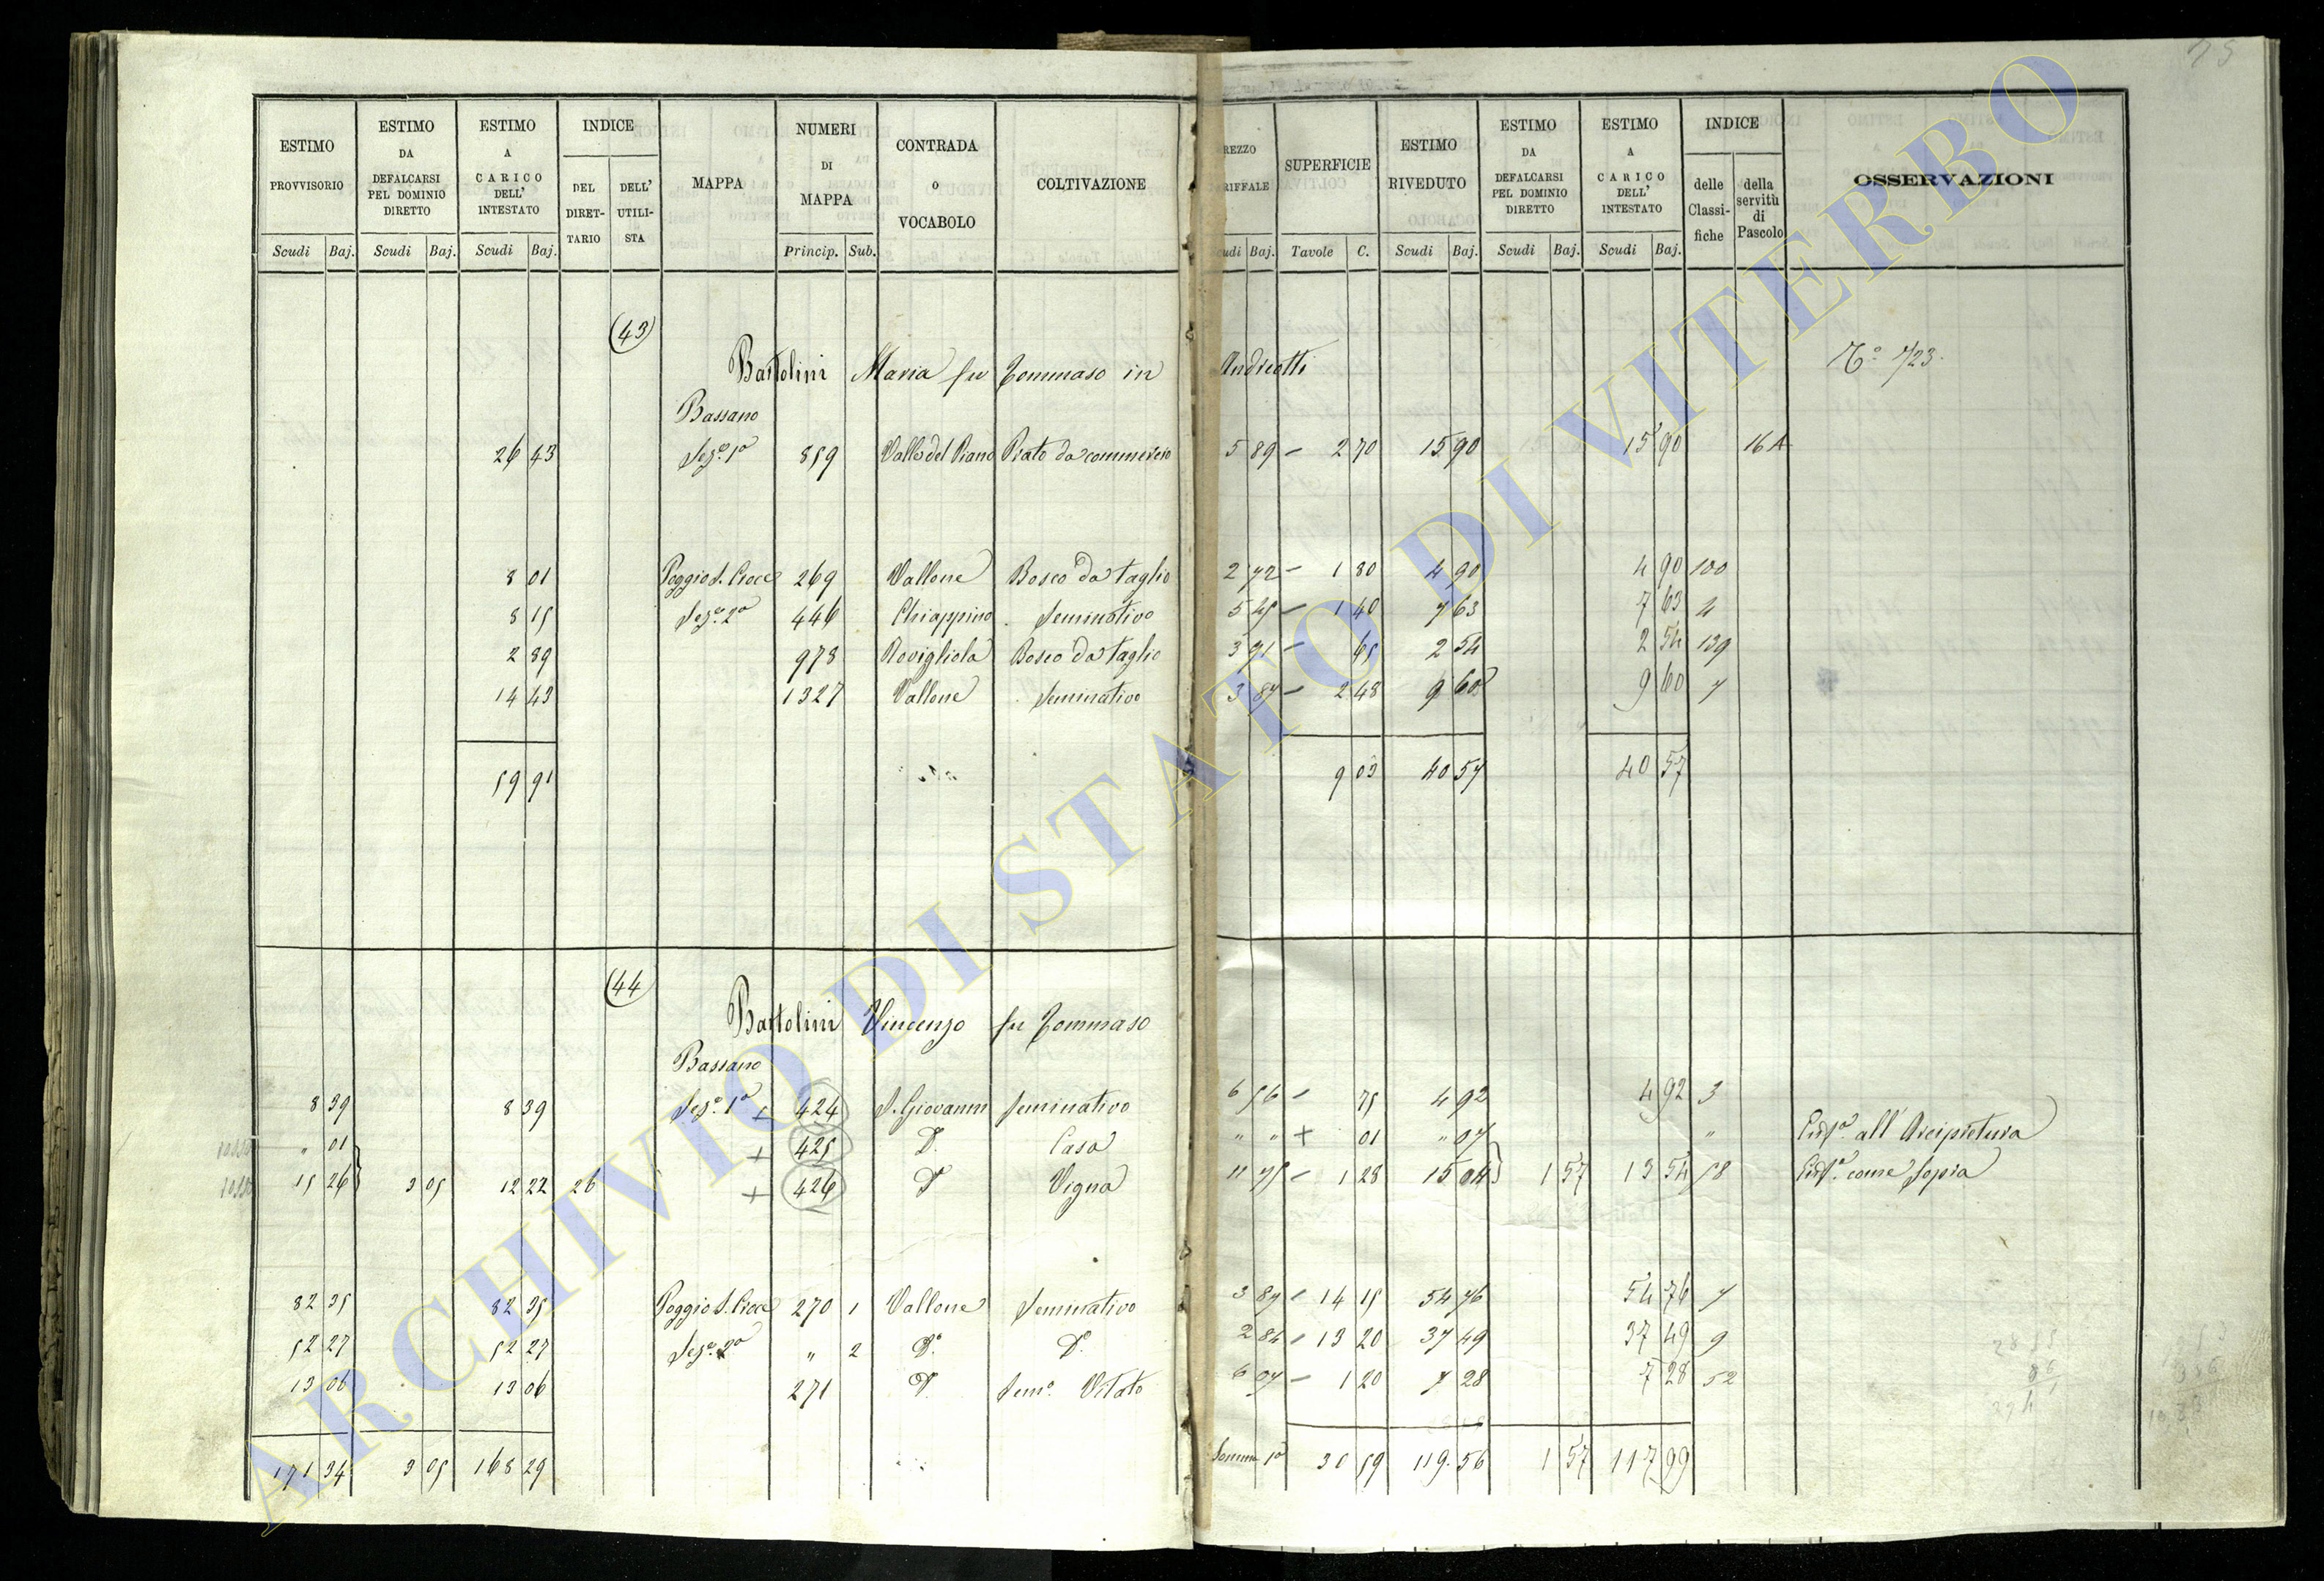 75
ESTIMO PROVVISORIO | ESTIMO DA DEFALCARSI PEL DOMINIO DIRETTO | ESTIMO A CARICO DELL' INTESTATO | INDICE DEL DIRETTARIO | DELL' UTILISTA | MAPPA | NUMERI DI MAPPA | CONTRADA O VOCABOLO | COLTIVAZIONE | REZZO RIFFALE | SUPERFICIE | ESTIMO RIVEDUTO | ESTIMO DA DEFALCARSI PEL DOMINIO DIRETTO | ESTIMO A CARICO DELL' INTESTATO | INDICE delle Classifiche | della servitù di Pascolo | OSSERVAZIONI
Scudi Baj. Scudi Baj. Scudi Baj. Princip. Sub. udi Baj. Tavole C. Scudi Baj. Scudi Baj. Scudi Baj.
(43)
Bartolini Maria fu Tommaso in Andreotti N.º 723.
Bassano
26 43 Sez.e 1a 859 Valle del Piano Prato da commercio 5 89 – 2 70 15 90 15 90 16 A
8 01 Poggio S. Croce 269 Vallone Bosco da taglio 2 72 – 1 80 4 90 4 90 100
8 15 Sez.e 2a 446 Chiappino Seminativo 5 45 – 1 40 7 63 7 63 4
2 89 978 Rovigliola Bosco da taglio 3 91 – 65 2 54 2 54 139
14 43 1327 Vallone Seminativo 3 87 – 2 48 9 60 9 60 7
59 91 9 03 40 57 40 57
(44)
Bartolini Vincenzo fu Tommaso
Bassano
8 39 8 39 Sez.e 1a + 424 S. Giovanni Seminativo 6 56 – 75 4 92 4 92 3
" 01 + 425 D.o Casa " " + 01 " 07 " Enf.a all' Arcipretura
15 26 3 05 12 22 26 + 426 D.o Vigna 11 75 – 1 28 15 04 1 57 13 54 58 Enf.a come sopra
82 35 82 35 Poggio S. Croce 270 1 Vallone Seminativo 3 87 – 14 15 54 76 54 76 7
52 27 52 27 Sez.e 2a " 2 D.o D.o 2 84 – 13 20 37 49 37 49 9
13 06 13 06 271 D.o Sem.o Vitato 6 07 – 1 20 7 28 7 28 52
171 34 3 05 168 29 Somma 1a 30 59 119.56 1 57 117 99
ARCHIVIO DI STATO DI VITERBO